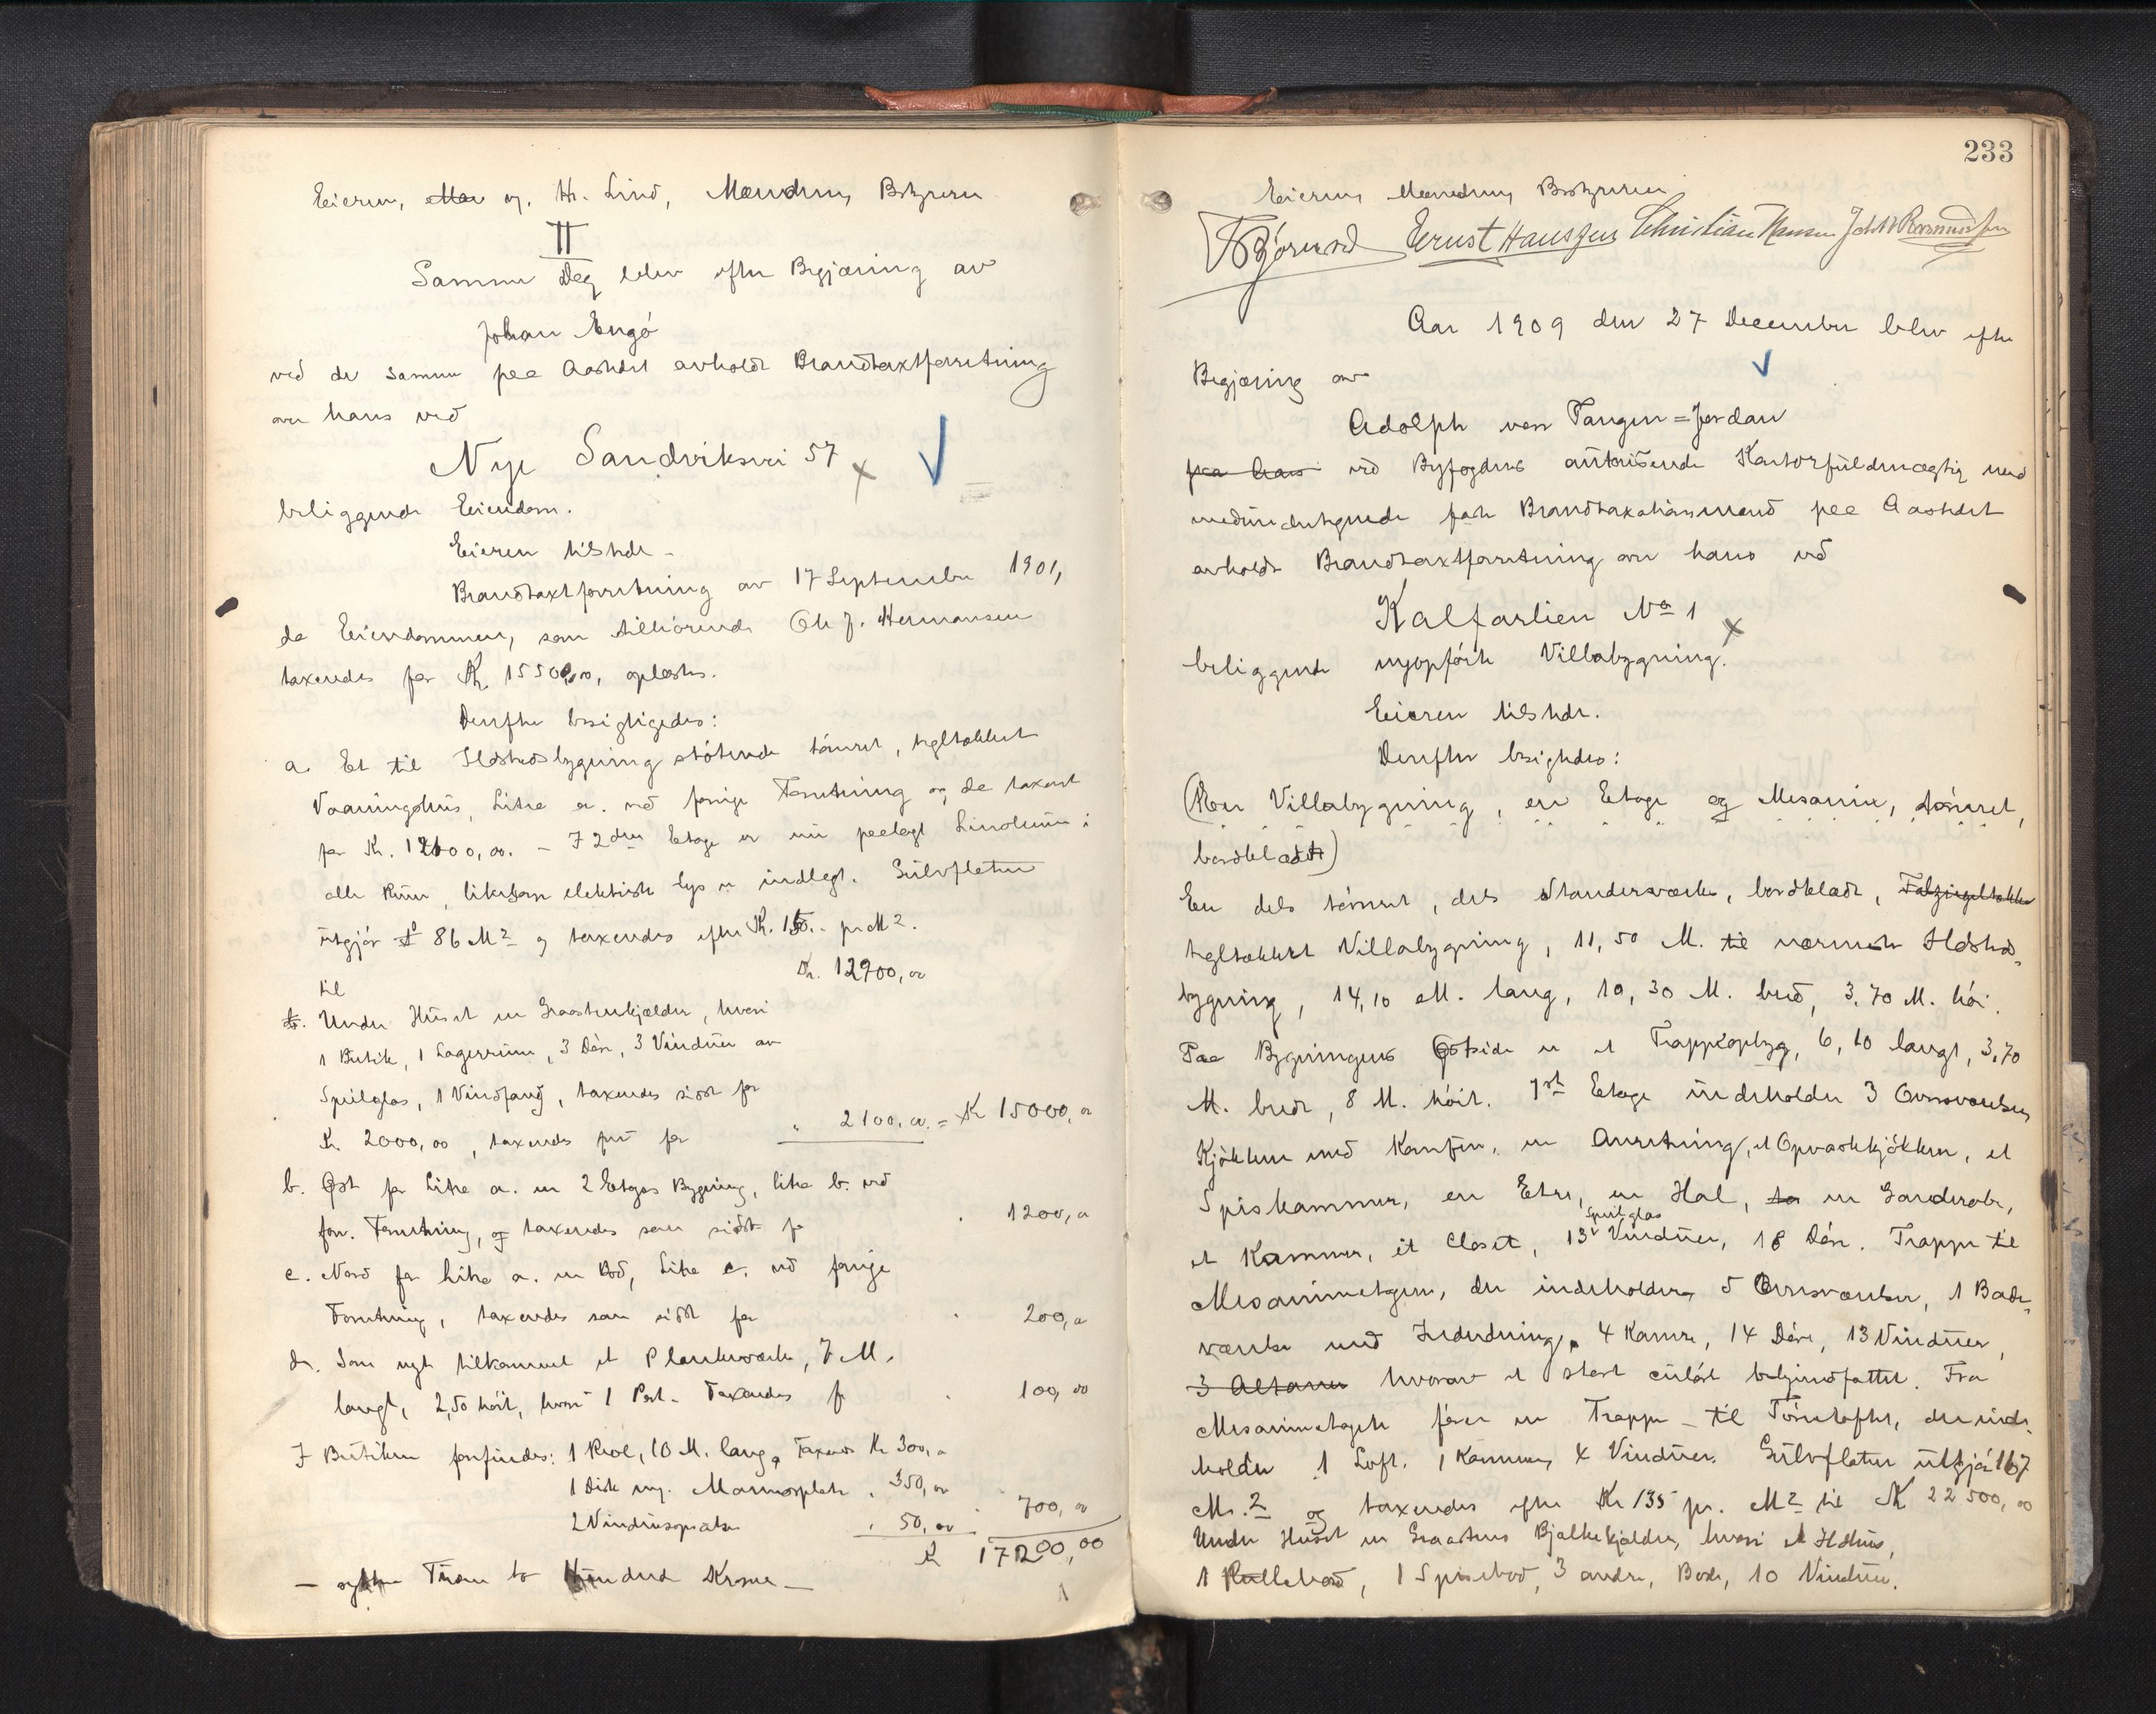 Eieren, og, Hr. Lind, Mændene, Bestyreren
II
Samme Dag blev efter Begjæring av
Johan Engó
ved de samme paa Aastedet avholdt Brandtaxtforretning
over hans ved
Nye Sandviksvei 57
beliggende Eiendom.
Eieren tilstede -
Brandtaxtforretning av 17 September 1901,
da Eiendommen, som tilhörende Ole J. Hermansen
taxeredes for Kr. 15500,00, oplæstes.
Derefter besigtigedes:
a. Et til Ildstedsbygning stötende tömret, tegltækket
Vaaningshus, Litra a. ved forrige Forretning og da taxeret
for Kr. 12100,00. - I 2den Etage er nu paalagt Linoleum i
alle Rum, likesom elektrisk lys er indlagt. Gulvflaten
utgjör 86 M2 og taxeredes efter Kr. 150.- pr M2.
til Kr. 12900,00
Under Huset en Graastenkjælder, hvori
1 Butik, 1 Lagerrum, 3 Döre, 3 Vinduer av
Speilglas, 1 Vindfang, taxeredes sidst for
Kr. 2000,00, taxeredes nu for " 2100,00. = Kr 15000,00
b. Öst for Litra a. en 2 Etages Bygning, litra b. ved
forr. Forretning, og taxeredes som sidst for 1200,00
c. Nord for Litra a. en Bod, Litra c. ved forrige
Forretning, taxeredes som sidst for 200,00
d. Som nyt tilkommet et Plankeværk, 7 M.
langt, 2,50 höit, hvori 1 Port. Taxeredes for 100,00
I Butiken forfindes: 1 Reol, 10 M. lang, Taxeres Kr 300,00
1 Disk m. Marmorplate " 350,00
2 Vindusopsatser " 50,00 700,00
Kr 17200,00
- sytten Tusen to Hundrede Kroner -
233
Eieren, Mændene, Bestyreren
Ernst Hanssen Christian Hansen
Aar 1909 den 27 December blev efter
Begjæring av
Adolph von Tangen=Jordan
fra hans ved Byfogdens autoriserede Kontorfuldmægtig med
medundertegnede faste Brandtaxationsmænd paa Aastedet
avholdt Brandtaxtforretning over hans ved
Kalfarlien No 1
beliggende nyopförte Villabygning.
Eieren tilstede.
Derefter besigtedes:
(En Villabygning, en Etage og Mesanin, tömret,
bordklædt)
En dels tömret, dels Standerværks, bordklædt, Falzziegeltækket
tegltækket Villabygning, 11,50 M. til nærmeste Ildsteds-
bygning, 14,10 M. lang, 10,30 M. bred, 3,70 M. höi.
Paa Bygningens Östside er et Trappeopbyg, 6,10 langt, 3,70
M. bredt, 8 M. höit. 1ste Etage indeholder 3 Ovnsværelser,
Kjökken med Komfyr, en Anretning, et Opvaskkjökken, et
Spiskammer, en Entre, en Hal, en Garderobe,
et Kammer, et Closet, 13 Speilglas Vinduer, 18 Döre. Trappe til
Mesaninetagen, der indeholder 5 Ovnsværelser, 1 Bade-
værelse med Indredning, 4 Kamre, 14 Döre, 13 Vinduer,
3 Altaner hvorav et stort
Mesaninetagen förer en Trappe til Törreloftet, der inde-
holder 1 Loft. 1 Kammer, 4 Vinduer. Gulvflaten utgjör 167
M.2 og taxeredes efter Kr 135 pr. M2 til Kr 22500,00
Under Huset en Graastens Bjælkekjælder, hvori et Ildhus,
1 Rullebod, 1 Spisebod, 3 andre, Boder, 10 Vinduer.